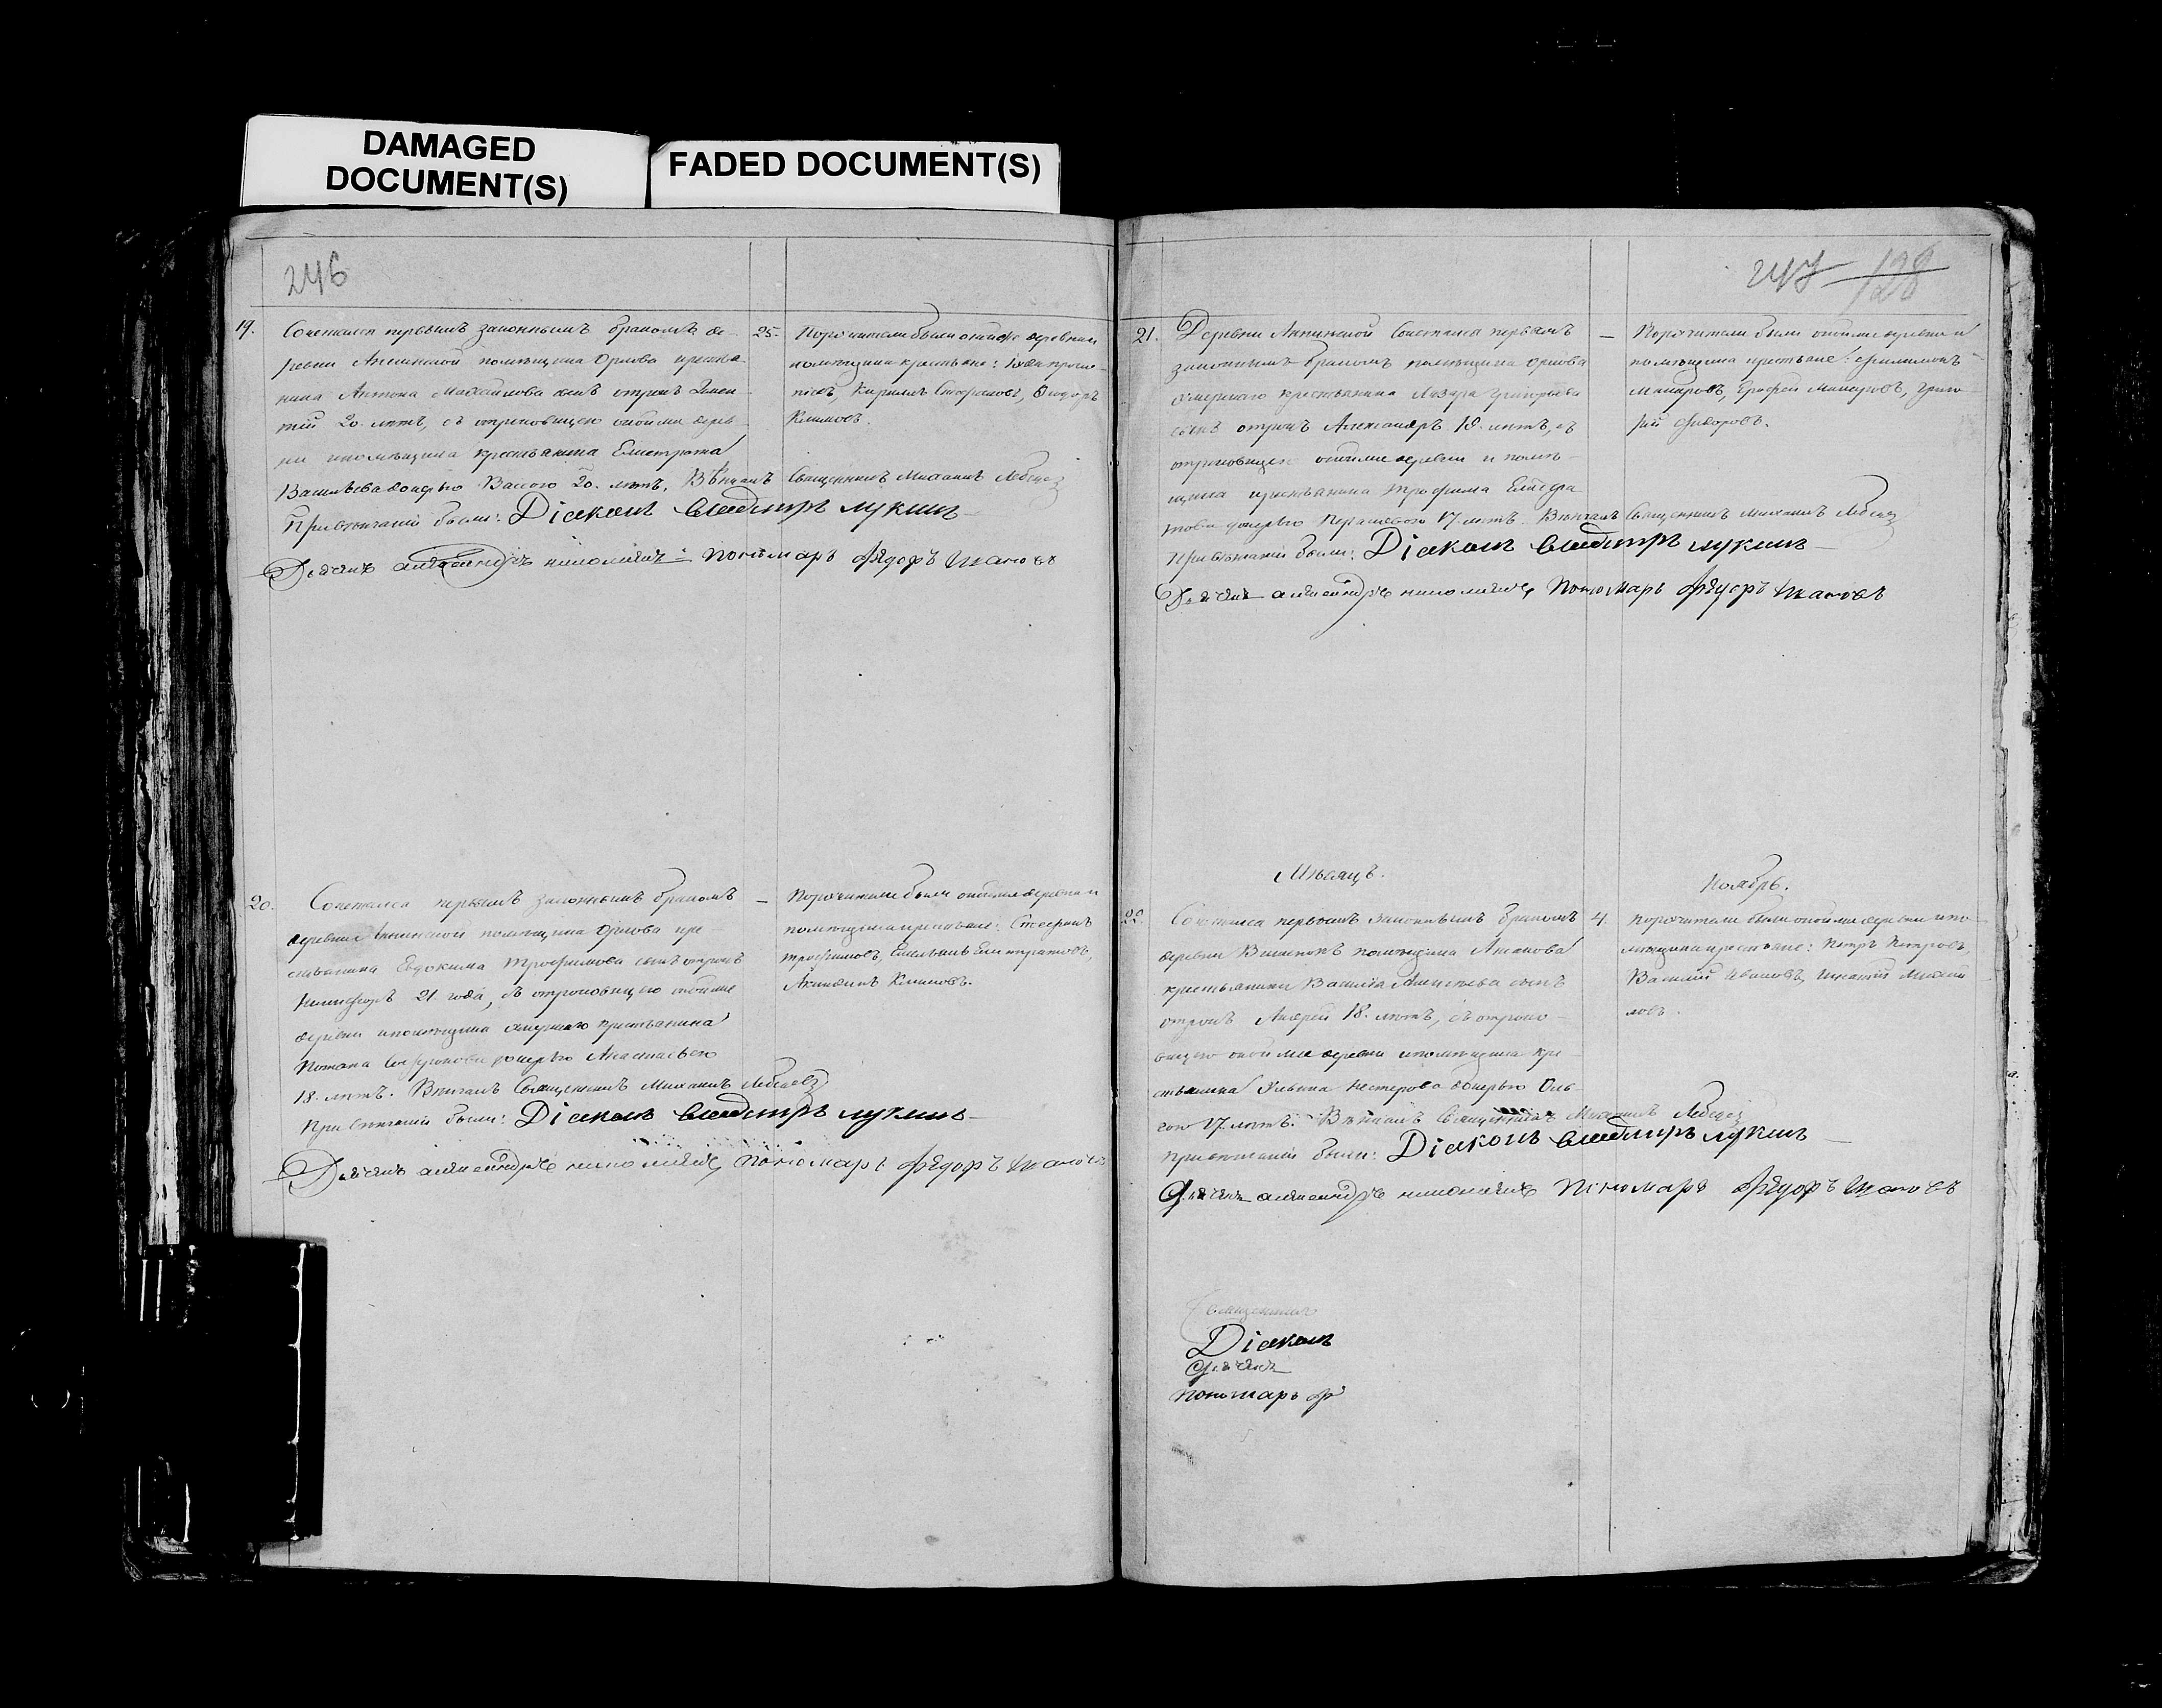 DAMAGED
DOCUMENT(S)
FADED DOCUMENT(S)
246
19.
Сочетался первымъ законнымъ бракомъ де-
ревни Аннинской помѣщика Орлова крестья-
нина Антона Михайлова сынъ отрокъ
тій 20. лѣтъ, съ отроковицею оной же дерев-
ни и помѣщика крестьянина Елистрата
Васильева дочерью Вассою 20. лѣтъ. Вѣнчалъ Священникъ Михаилъ Лебедев
При вѣнчаніи были: Діаконъ Владимиръ Лукинъ
Дьячекъ Александръ Пономарь Фѣдоръ Ивановъ
25.
Поручители были оной же деревни и
помѣщика крестьяне:
Кирилъ Стефановъ, Ѳедоръ
Климовъ.
20.
Сочетался первымъ законнымъ бракомъ
деревни Аннинской помѣщика Орлова кре-
стьянина Евдокима Трофимова сынъ отрокъ
Никифоръ 21 года, съ отроковицею оной же
деревни и помѣщика умершаго крестьянина
Потапа дочерью Анастасьею
18. лѣтъ. Вѣнчалъ Священникъ Михаилъ Лебедевъ
При вѣнчаніи были: Діаконъ Владимиръ Лукинъ
Дьячекъ Александръ Пономарь Фѣдоръ Ивановъ
—
Поручители были оной же деревни и
помѣщика крестьяне: Стефанъ
Трофимовъ, Емельянъ Елистратовъ,
Акиндинъ Климовъ.
247
128
21.
Деревни Аннинской Сочетался первымъ
законнымъ бракомъ помѣщика Орлова
умершаго крестьянина Лазаря Григорьева
сынъ отрокъ Александръ 18. лѣтъ, съ
отроковицею оной же деревни и помѣ-
щика крестьянина Трофима
дочерью 17 лѣтъ. Вѣнчалъ Священникъ Михаилъ Лебедев
При вѣнчаніи были: Діаконъ Владимиръ Лукинъ
Дьячекъ Александръ Пономарь Фѣдоръ Ивановъ
—
Поручители были оной же деревни и
помѣщика крестьяне: Филимонъ
Макаровъ, Ерофей Макаровъ, Григо-
рій Ѳедоровъ.
Мѣсяцъ.
Ноябрь.
22.
Сочетался первымъ законнымъ бракомъ
деревни помѣщика
крестьянина Василія Алексѣева сынъ
отрокъ Андрей 18. лѣтъ, съ отроко-
вицею оной же деревни и помѣщика кре-
стьянина Ульяна Нестерова дочерью Оль-
гою 17 лѣтъ. Вѣнчалъ Священникъ Михаилъ Лебедев
При вѣнчаніи были: Діаконъ Владимиръ Лукинъ
Дьячекъ Александръ Пономарь Фѣдоръ Ивановъ
4.
Поручители были оной же деревни и по-
мѣщика крестьяне: Петръ Петровъ,
Василій Ивановъ, Игнатій Михай-
ловъ.
Священникъ
Діаконъ
Дьячекъ
Пономарь Ф